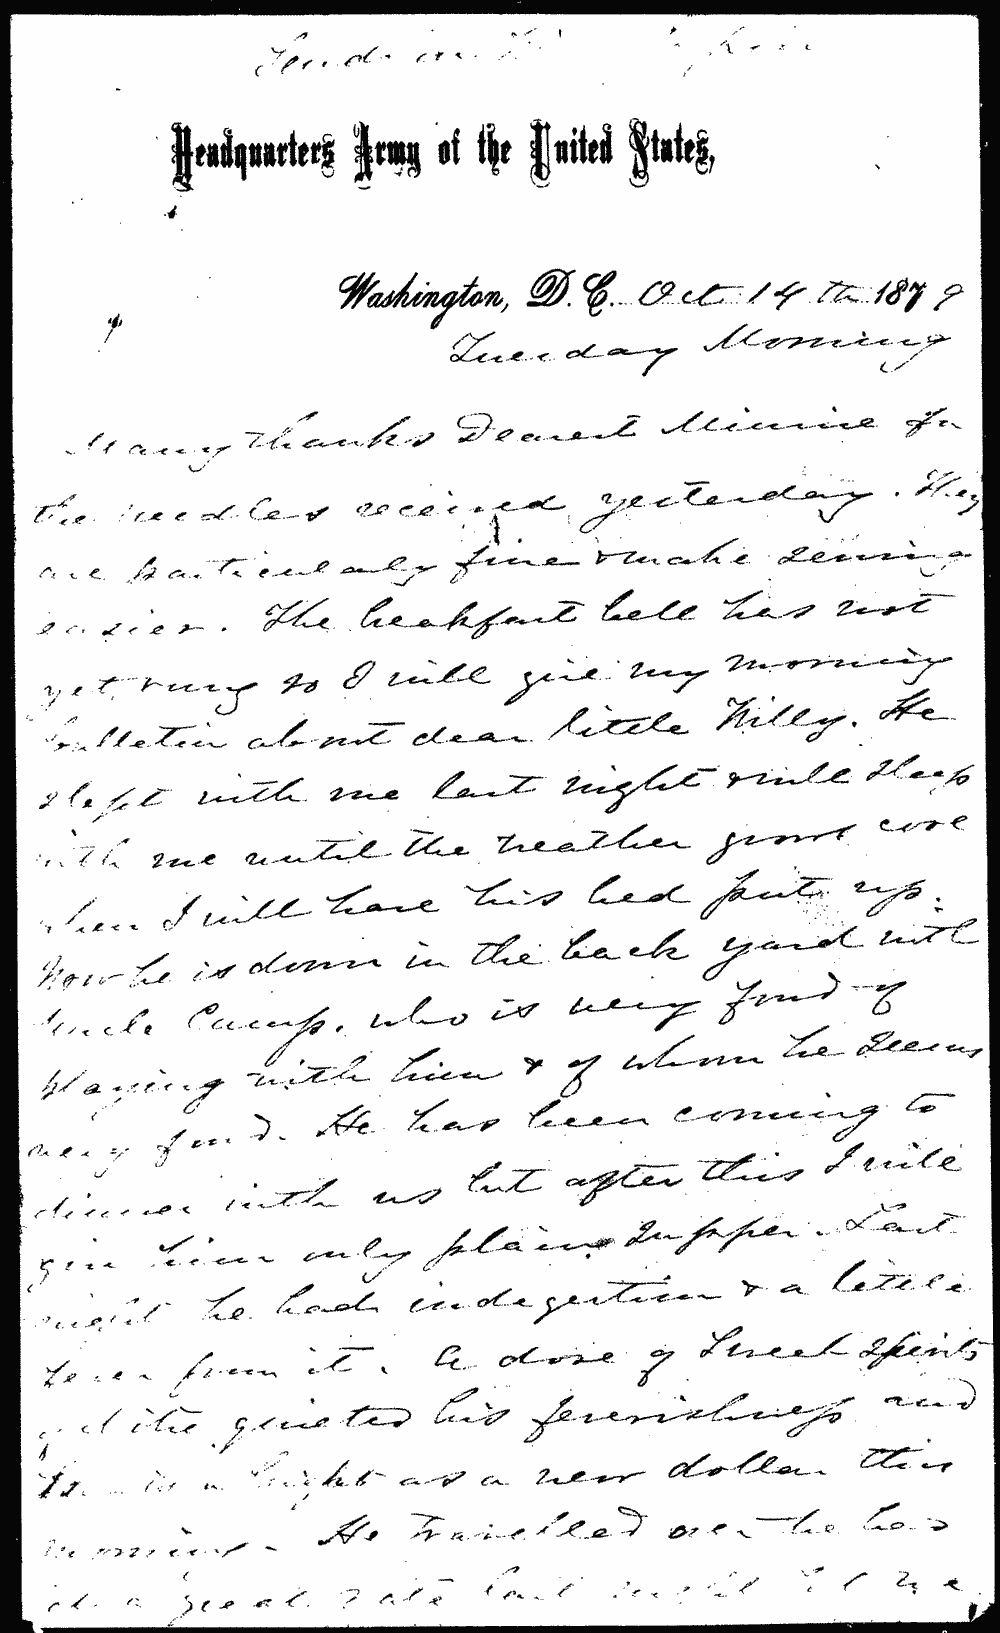 Headquarters Army of the United States,
Washington, D.C. Oct 14th 1879
Tuesday Morning
Many thanks Dearest Minnie for
the needles received yesterday. They
are particularly fine & make sewing
easier. The beakfast bell has not
yet rung so I will give my morning
bulletin about dear little Willy. He
slept with me last night & will sleep
with me until the weather grows cool
when I will have his bed put up.
Now he is down in the back yard with
Uncle Cump. who is very fond of
playing with him & of whom he seems
very fond. He has been coming to
dinner with us but after this I will
give him only plain supper. Last
night he had indigestion & a little
fever from it. A dose of Sweet Spirits
of Nitre quieted his feverishness and
he is as bright as a new dollar this
morning. He travelled over the bed
at a great rate last night